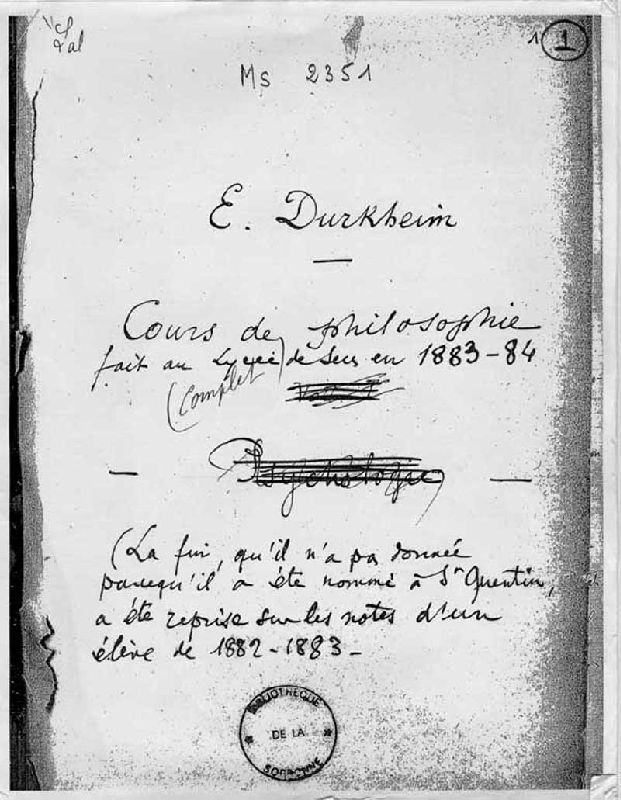 1 1
Ms 2351
E. Durkheim
Cours de philosophie
fait au Lycée de Sens en 1883-84
(Complet)
— Psychologie —
(La fin, qu'il n'a pas donnée
parcequ'il a été nommé à St Quentin,
a été reprise sur les notes d'un
élève de 1882-1883-
BIBLIOTHÈQUE
DE LA
SORBONNE